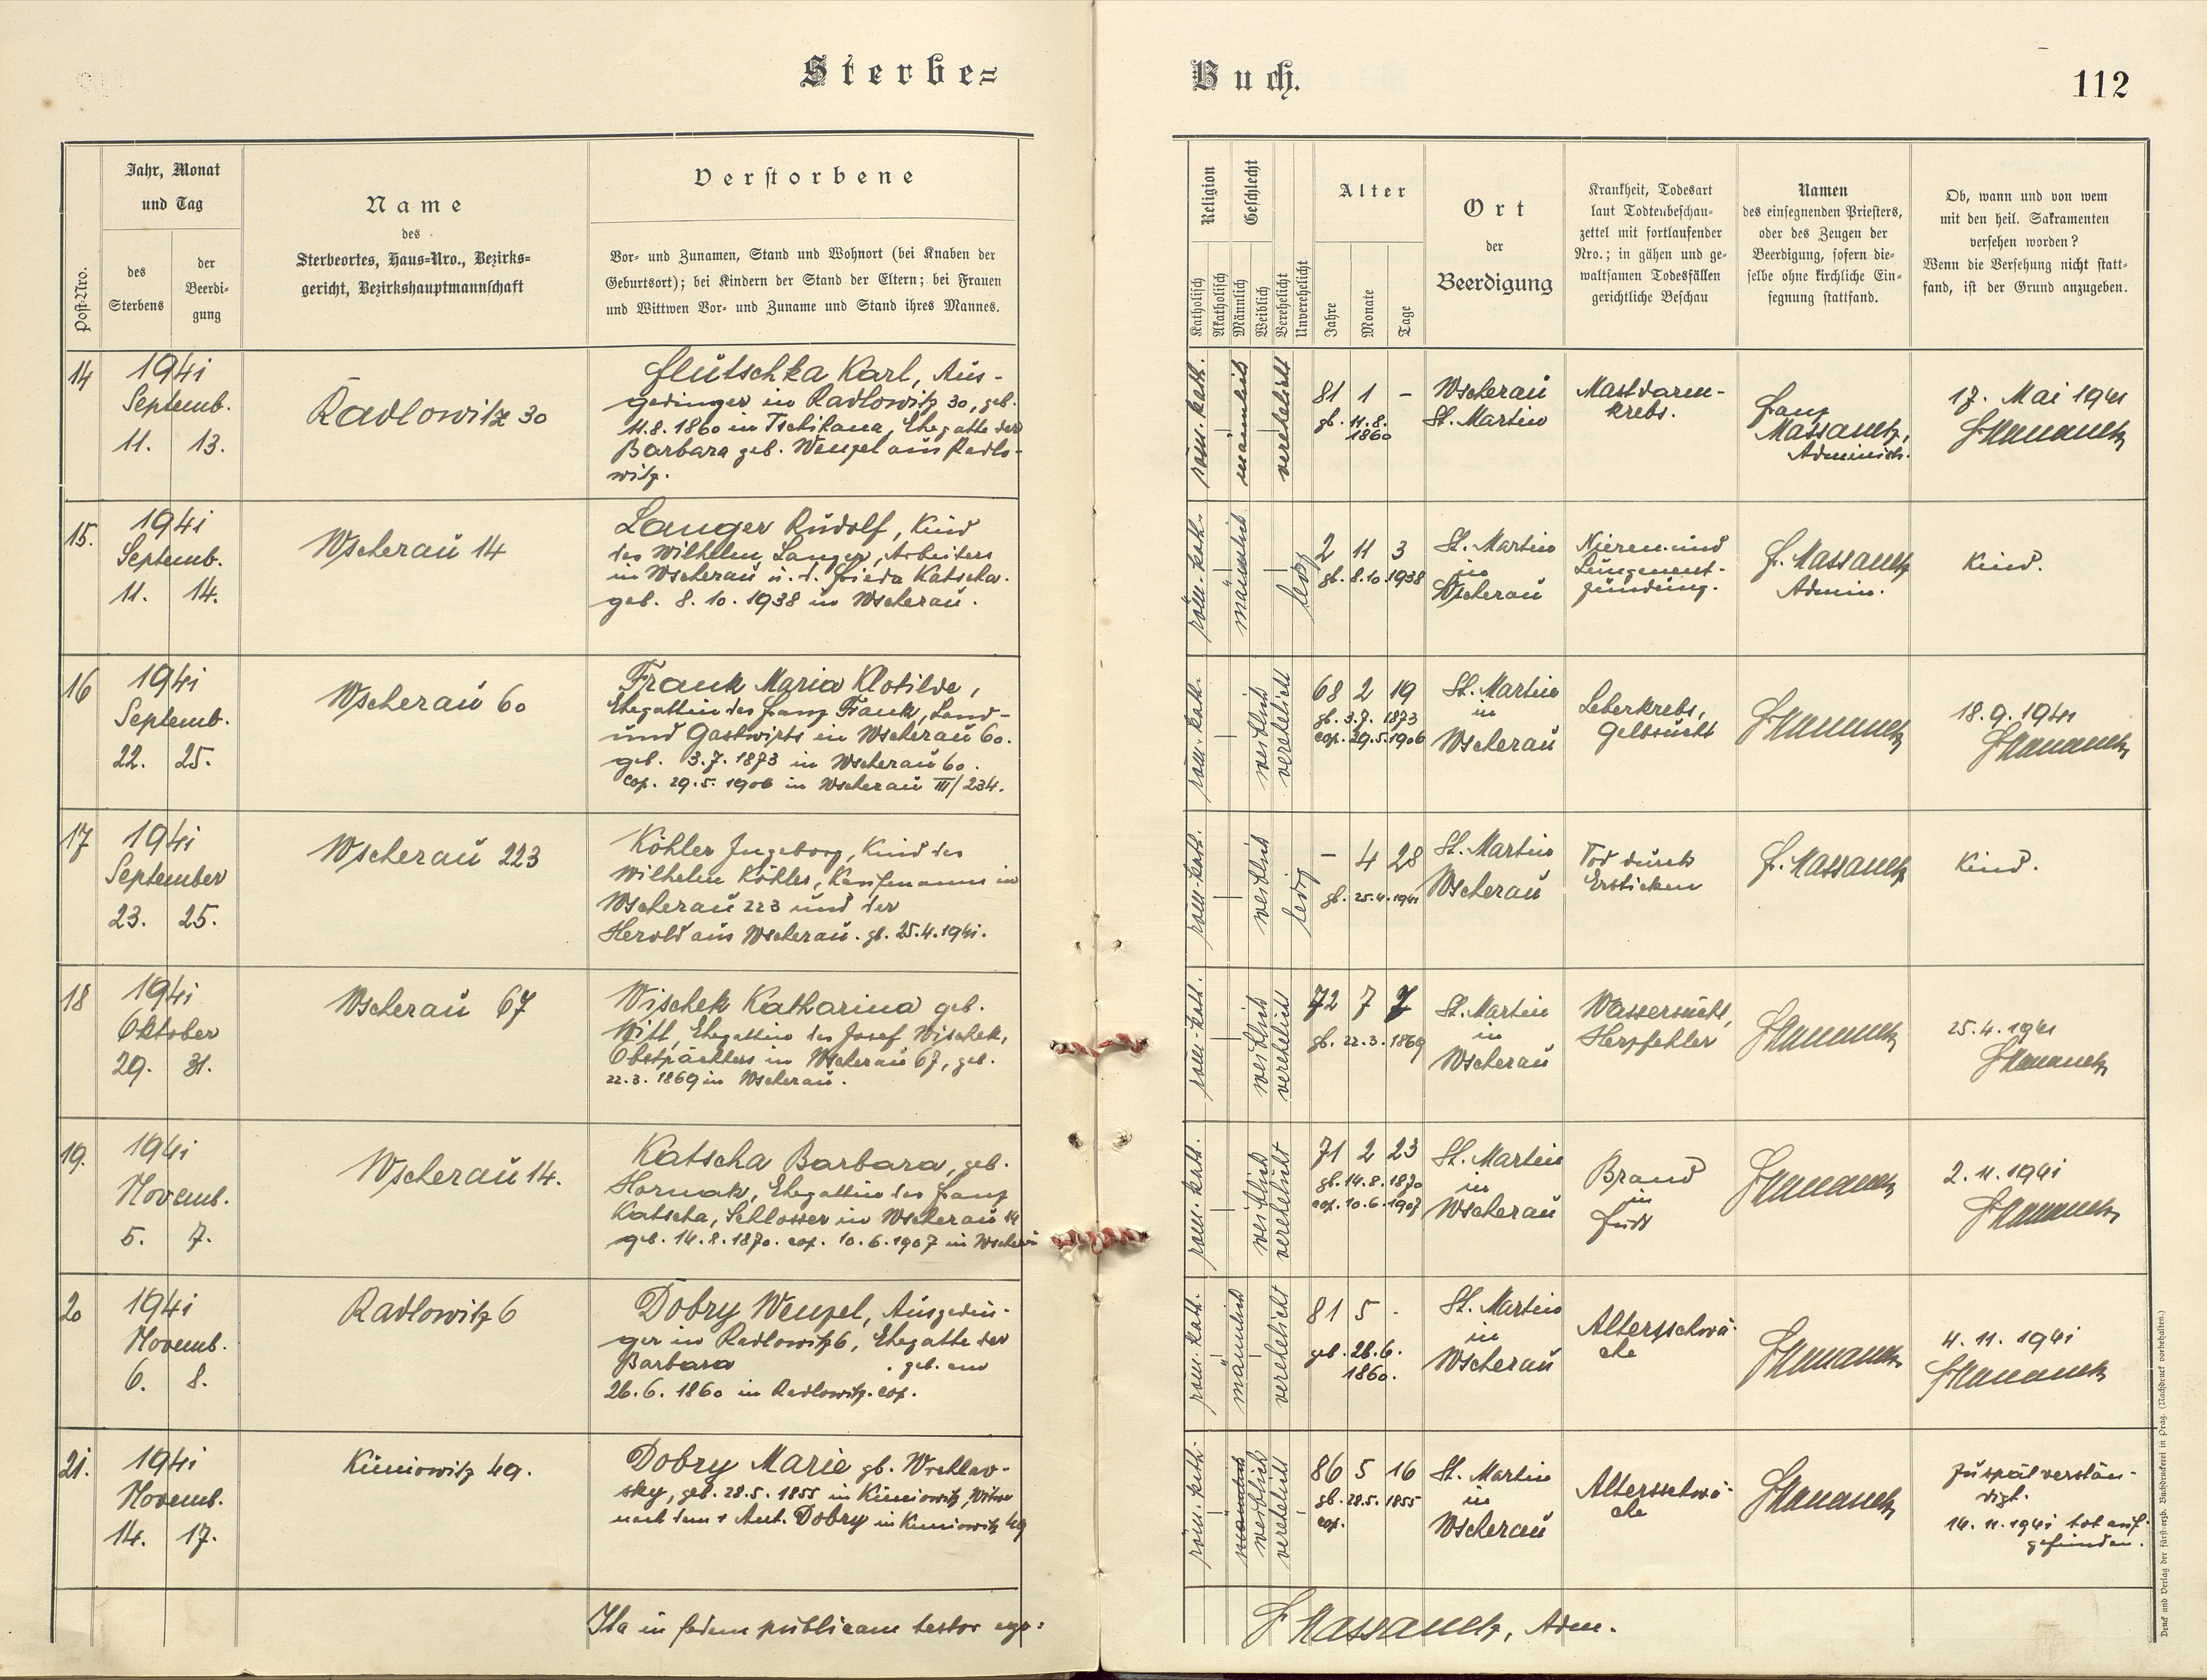 Sterbe=
Buch.
112
Post-Nro.
Jahr, Monat
und Tag
des
Sterbens
der
Beerdi-
gung
Name
des
Sterbeortes, Haus-Nro., Bezirks-
gericht, Bezirkshauptmannschaft
Verstorbene
Vor- und Zunamen, Stand und Wohnort (bei Knaben der
Geburtsort); bei Kindern der Stand der Eltern; bei Frauen
und Wittwen Vor- und Zuname und Stand ihres Mannes.
Religion
Katholisch
Akatholisch
Geschlecht
Männlich
Weiblich
Verehelicht
Unverehelicht
Alter
Jahre
Monate
Tage
Ort
der
Beerdigung
Krankheit, Todesart
laut Todtenbeschau-
zettel mit fortlaufender
Nro.; in gähen und ge-
waltsamen Todesfällen
gerichtliche Beschau
Namen
des einsegnenden Priesters,
oder des Zeugen der
Beerdigung, sofern die-
selbe ohne kirchliche Ein-
segnung stattfand.
Ob, wann und von wem
mit den heil. Sakramenten
versehen worden?
Wenn die Versehung nicht statt-
fand, ist der Grund anzugeben.
14
1941
Septemb.
11. 13.
Radlowitz 30
Karl, Aus-
gedinger in Radlowitz 30, geb.
11.8.1860 in Tschikana, Ehegatte der
Barbara geb. Wenzel aus Radlo-
witz.
röm.-kath.
männlich
verehelicht
81 1 -
gb. 11.8.
1860
Wscherau
St. Martin
Mastdarm-
krebs.
Franz
Massanetz,
Administr.
17. Mai 1941
15.
1941
Septemb.
11. 14.
Wscherau 14
Langer Rudolf, Kind
des Wilhelm Langer, Arbeiters
in Wscherau u. d. Frieda Katscha.
geb. 8.10.1938 in Wscherau.
röm.-kath.
männlich
ledig
2 11 3
gb. 8.10.1938
St. Martin
in
Wscherau
Nieren und
Lungenent-
zündung.
F. Massanetz
Admin.
Kind.
16
1941
Septemb.
22. 25.
Wscherau 60
Frank Maria Klotilde,
Ehegattin des Franz Frank, Land-
und Gastwirts in Wscherau 60.
geb. 3.7.1873 in Wscherau 60.
cop. 29.5.1906 in Wscherau III/234.
röm.-kath.
weiblich
verehelicht
68 2 19
gb. 3.7.1873
cop. 29.5.1906
St. Martin
in
Wscherau
Leberkrebs,
Gelbsucht
F. Massanetz
18.9.1941
F. Massanetz
17
1941
September
23. 25.
Wscherau 223
Köhler Ingeborg, Kind des
Wilhelm Köhler, Kaufmanns in
Wscherau 223 und der
Herold aus Wscherau. gb. 25.4.1941.
röm.-kath.
weiblich
ledig
- 4 28
gb. 25.4.1941
St. Martin
Wscherau
Tod durch
Ersticken
F. Massanetz
Kind.
18
1941
Oktober
29. 31.
Wscherau 67
Wischek Katharina geb.
Witt, Ehegattin des Josef Wischek,
Obstpächters in Wscherau 67, geb.
22.3.1869 in Wscherau.
röm.-kath.
weiblich
verehelicht
72 7 7
gb. 22.3.1869
St. Martin
in
Wscherau
Wassersucht,
Herzfehler
F. Massanetz
25.4.1941
F. Massanetz
19.
1941
Novemb.
5. 7.
Wscherau 14.
Katscha Barbara, geb.
Hornak, Ehegattin des Franz
Katscha, Schlosser in Wscherau 14
geb. 14.8.1870. cop. 10.6.1907 in Wscherau
röm.-kath.
weiblich
verehelicht
71 2 23
gb. 14.8.1870
cop. 10.6.1907
St. Martin
in
Wscherau
Brand
in
Fuß
F. Massanetz
2.11.1941
F. Massanetz
20
1941
Novemb.
6. 8.
Radlowitz 6
Dobry Wenzel, Ausgedin-
ger in Radlowitz 6, Ehegatte der
Barbara . geb. am
26.6.1860 in Radlowitz. cop.
röm.-kath.
männlich
verehelicht
81 5 -
geb. 26.6.
1860.
St. Martin
in
Wscherau
Altersschwä-
che
F. Massanetz
4.11.1941
F. Massanetz
21.
1941
Novemb.
14. 17.
Kuniowitz 49.
Dobry Marie gb. Wrchlav-
sky, geb. 28.5.1855 in Kuniowitz, Witwe
nach dem + Ant. Dobry in Kuniowitz 49
röm.-kath.
männlich
weiblich
verehelicht
86 5 16
gb. 28.5.1855
cop.
St. Martin
in
Wscherau
Altersschwä-
che
F. Massanetz
Zu spät verstän-
digt.
14.11.1941 tot auf-
gefunden.
Ita in fidem publicam testor ego:
F. Massanetz, Adm.
Druck und Verlag der fürst-erzb. Buchdruckerei in Prag. (Nachdruck vorbehalten.)